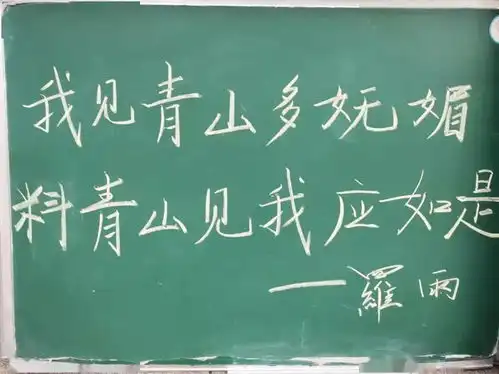 我见青山多妩媚
料青山见我应如是
—羅雨